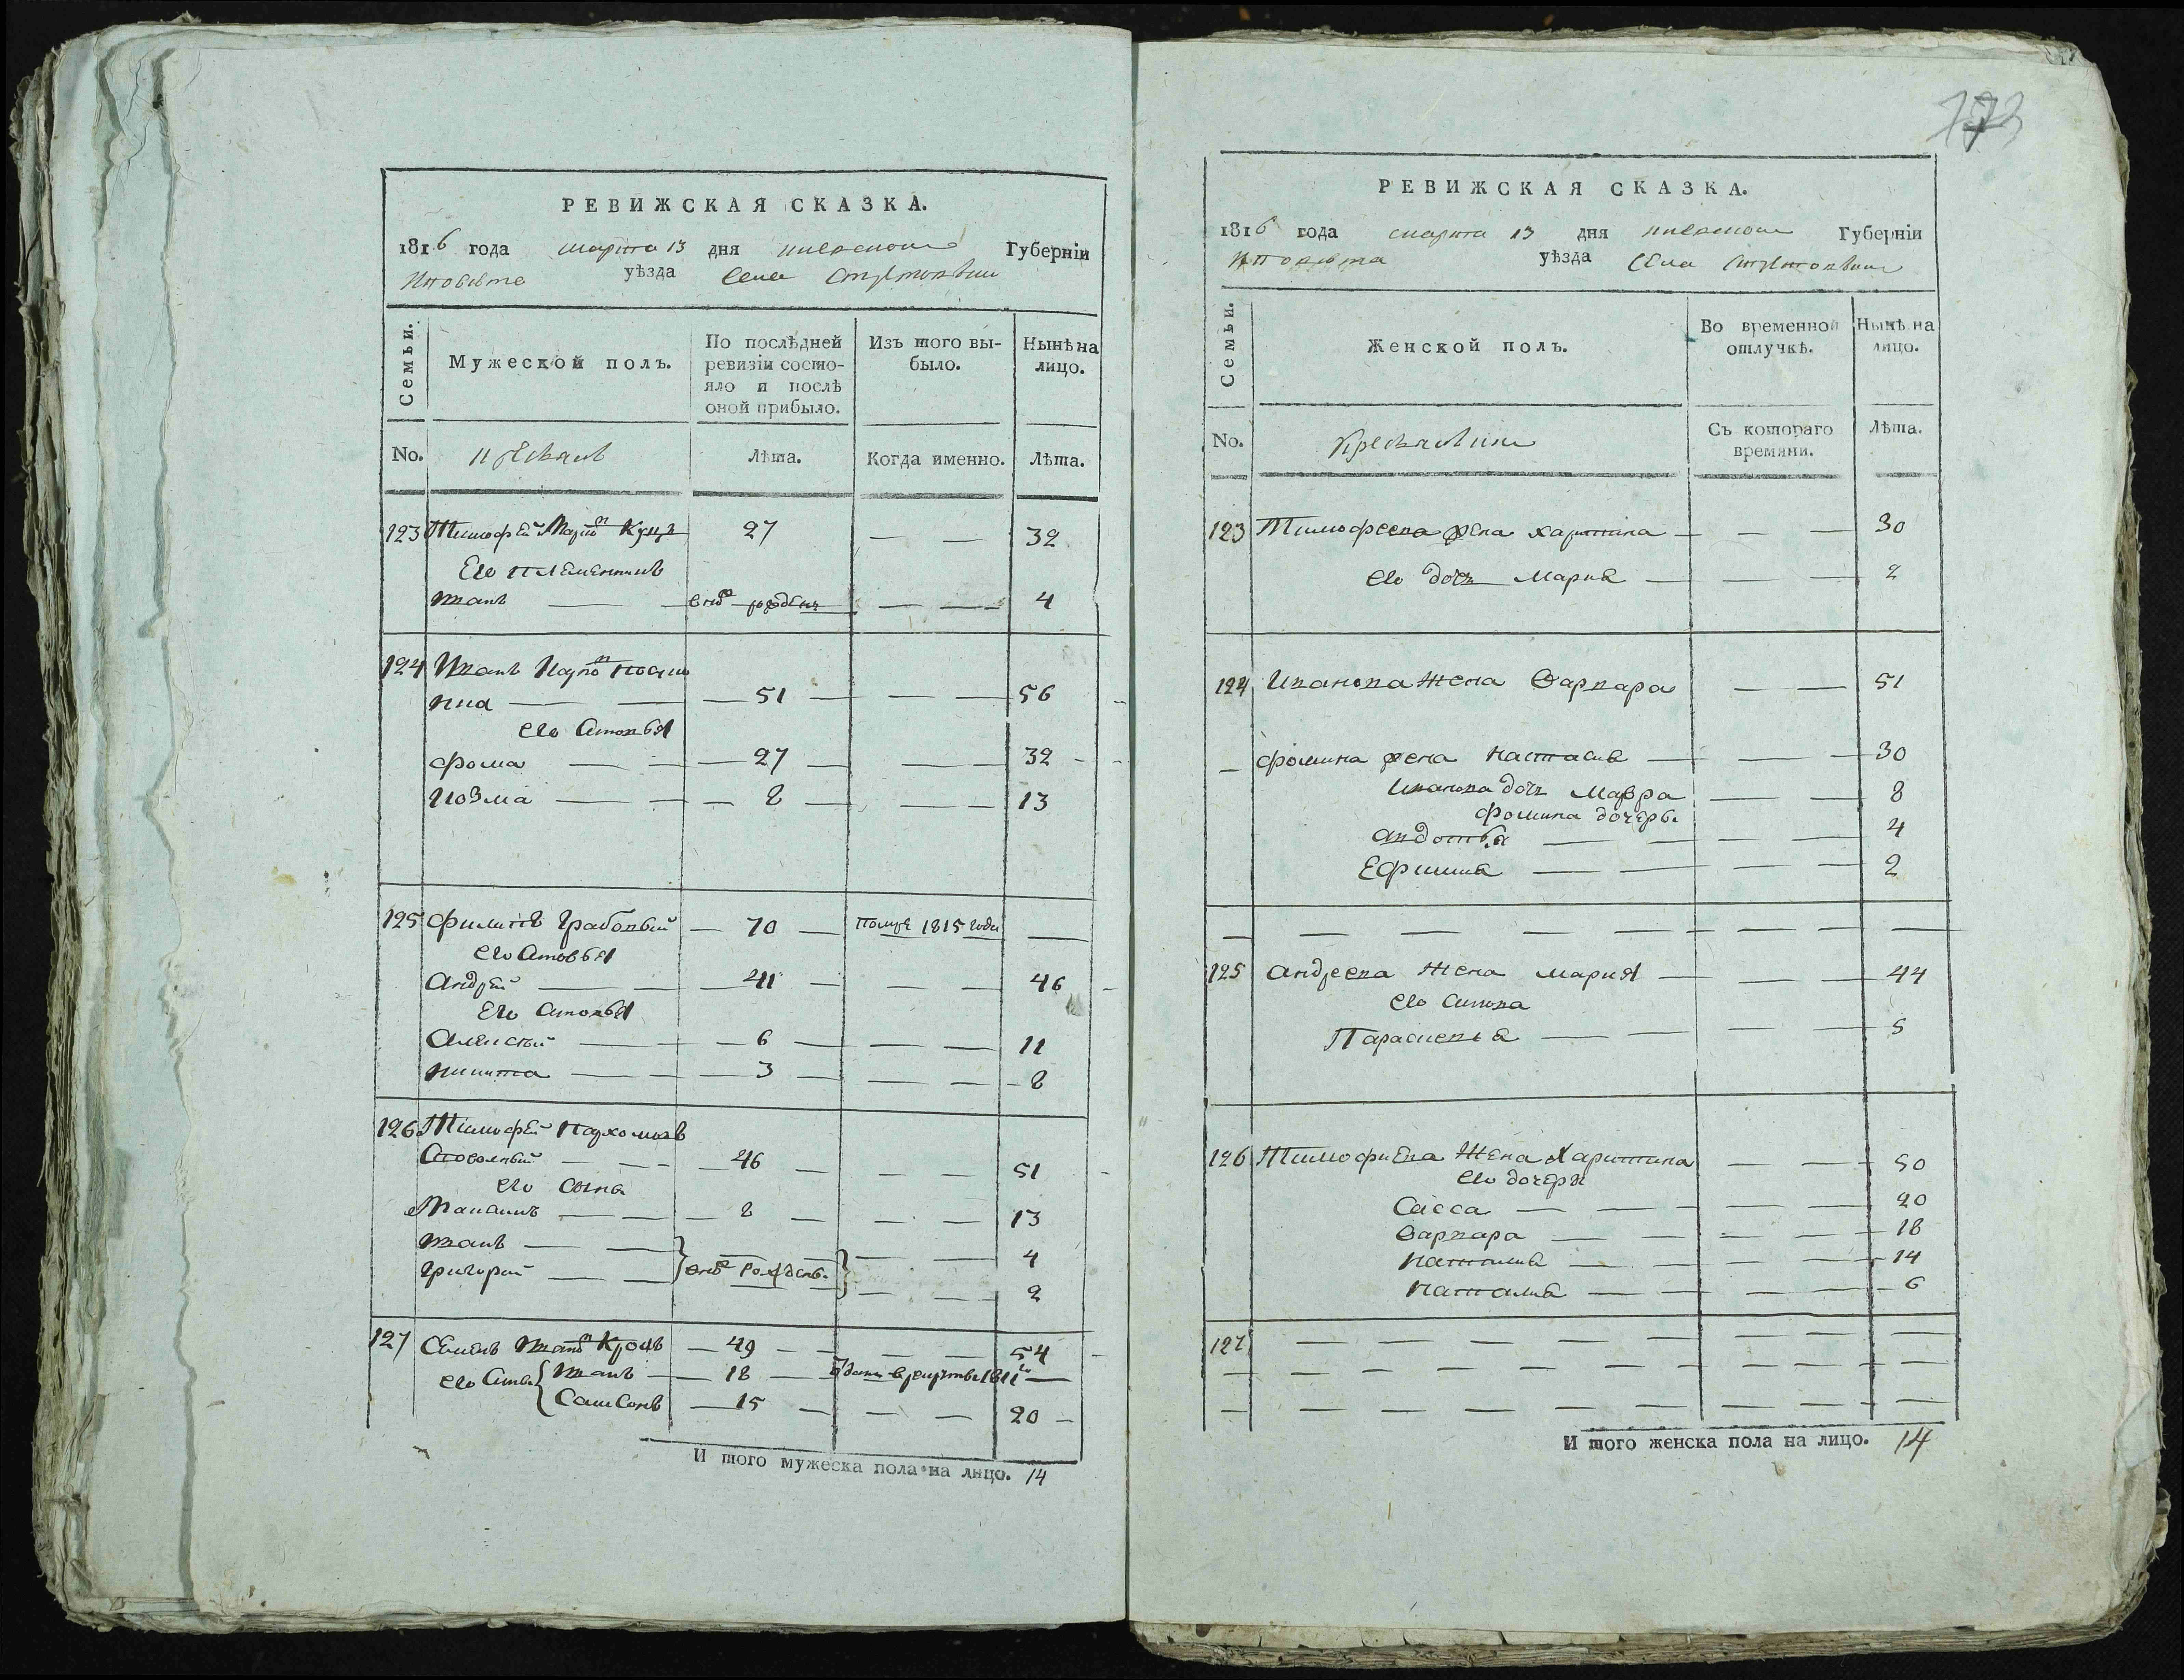 РЕВИЖСКАЯ СКАЗКА.
1816 года марта 13 дня Киевской Губерніи
уѣзда Села
Семьи.
Мужеской полъ.
По послѣдней ревизіи состояло и послѣ оной прибыло.
Изъ того выбыло.
Нынѣ на лицо.
No.
Лѣта.
Когда именно.
Лѣта.
123 Тимофей Куцъ 27 — — 32
Его племенникъ
Иванъ — — рожденъ — — 4
124 Иванъ
— — 51 — — — 56
его Сыновья
Фома — — 27 — — — 32
Козма — — 8 — — — 13
125 Филипъ Грабовый — 70 — Помре 1815 года —
его Сыновья
Андрей — — 41 — — — 46
Его Сыновья
Алексѣй — — 6 — — — 11
Никита — — 3 — — — 8
126 Тимофей Пархомовъ
— — 46 — — — 51
его Сына
— — 8 — — — 13
Иванъ — — — — 4
Григорий — — рожденъ — — 2
127 Семенъ — 49 — — — 54
его Сына Иванъ — 18 — в рекруты 1811го —
Самсонъ — 15 — — — 20
И того мужеска пола на лицо. 14
773
РЕВИЖСКАЯ СКАЗКА.
1816 года марта 13 дня Киевской Губерніи
уѣзда Села
Семьи.
Женской полъ.
Во временной отлучкѣ.
Нынѣ на лицо.
No.
Съ котораго времяни.
Лѣта.
123 Тимофеева жена Харитина — — — 30
его дочь Мария — — — 2
124 Иванова жена Варвара — — 51
— Фомина жена Настасия — — — 30
Иванова дочь Мавра — — 8
Фомина дочеры
Авдотья — — — — 4
Ефимия — — — — 2
— — — — — — — — — —
125 Андреева жена Мария — — — 44
его Сынова
Параскевия — — — — 5
126 Тимофиева жена Харитина — — 50
его дочери
Сасса — — — — 20
Варвара — — — — 18
— — — — 14
Наталия — — — — 6
127 — — — — — — — — —
— — — — — — — — — —
— — — — — — — — — —
И того женска пола на лицо. 14